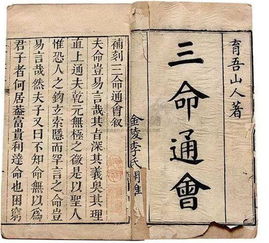 育吾山人著
三命通會
金陵李氏
補刻三命通會敘
夫命豈易言哉其旨深其義奧其理
直上通夫乾元無極之後是以聖人
惟恐人之鈎玄索隱而罕言之命豈
易言哉然夫子又曰不知命無以為
君子者何居蓋富貴利達命也困窮